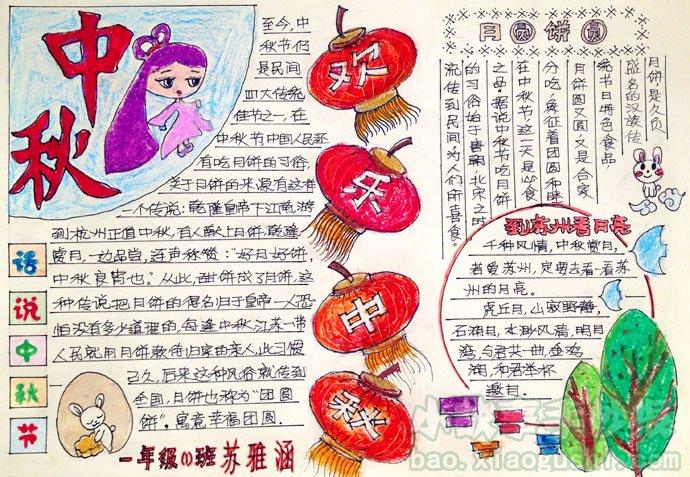 中秋
至今,中
秋节仍
是民间
四大传统
佳节之一,在
中秋节中国人民还
有吃月饼的习俗,
关于月饼的来源有这样
一个传说:乾隆皇帝下江南,游
到杭州正值中秋,有人献上月饼,乾隆
赏月,一边品尝,连声称赞:“好月好饼,
中秋良宵也。”从此,甜饼成了月饼,这
种传说把月饼的得名归于皇帝一人恐
怕没有多少道理的,每逢中秋江苏一带
人民就用月饼款待归家的亲人,此习惯
已久,后来这种风俗就传到
全国,月饼也称为“团圆
饼”。寓意幸福团圆.
话说中秋节
一年级(1)班 苏雅涵
欢乐中秋
月圆饼圆
月饼是久负
盛名的汉族传
统节日特色食品,
月饼圆又圆,又是合家
分吃,象征着团圆和睦
在中秋节,这一天是必食
之品,据说中秋节吃月饼
的习俗始于唐朝,北宋之时
流传到民间,为人们所喜食。
到苏州看月亮
千种风情,中秋赏月,
若爱苏州,定要去看一看苏
州的月亮。
虎丘月,山寂野静,
石湖月,水渺风清,明月
湾,与君共一曲,金鸡
湖,和君举杯
邀月.
bao.xiaogushi.com